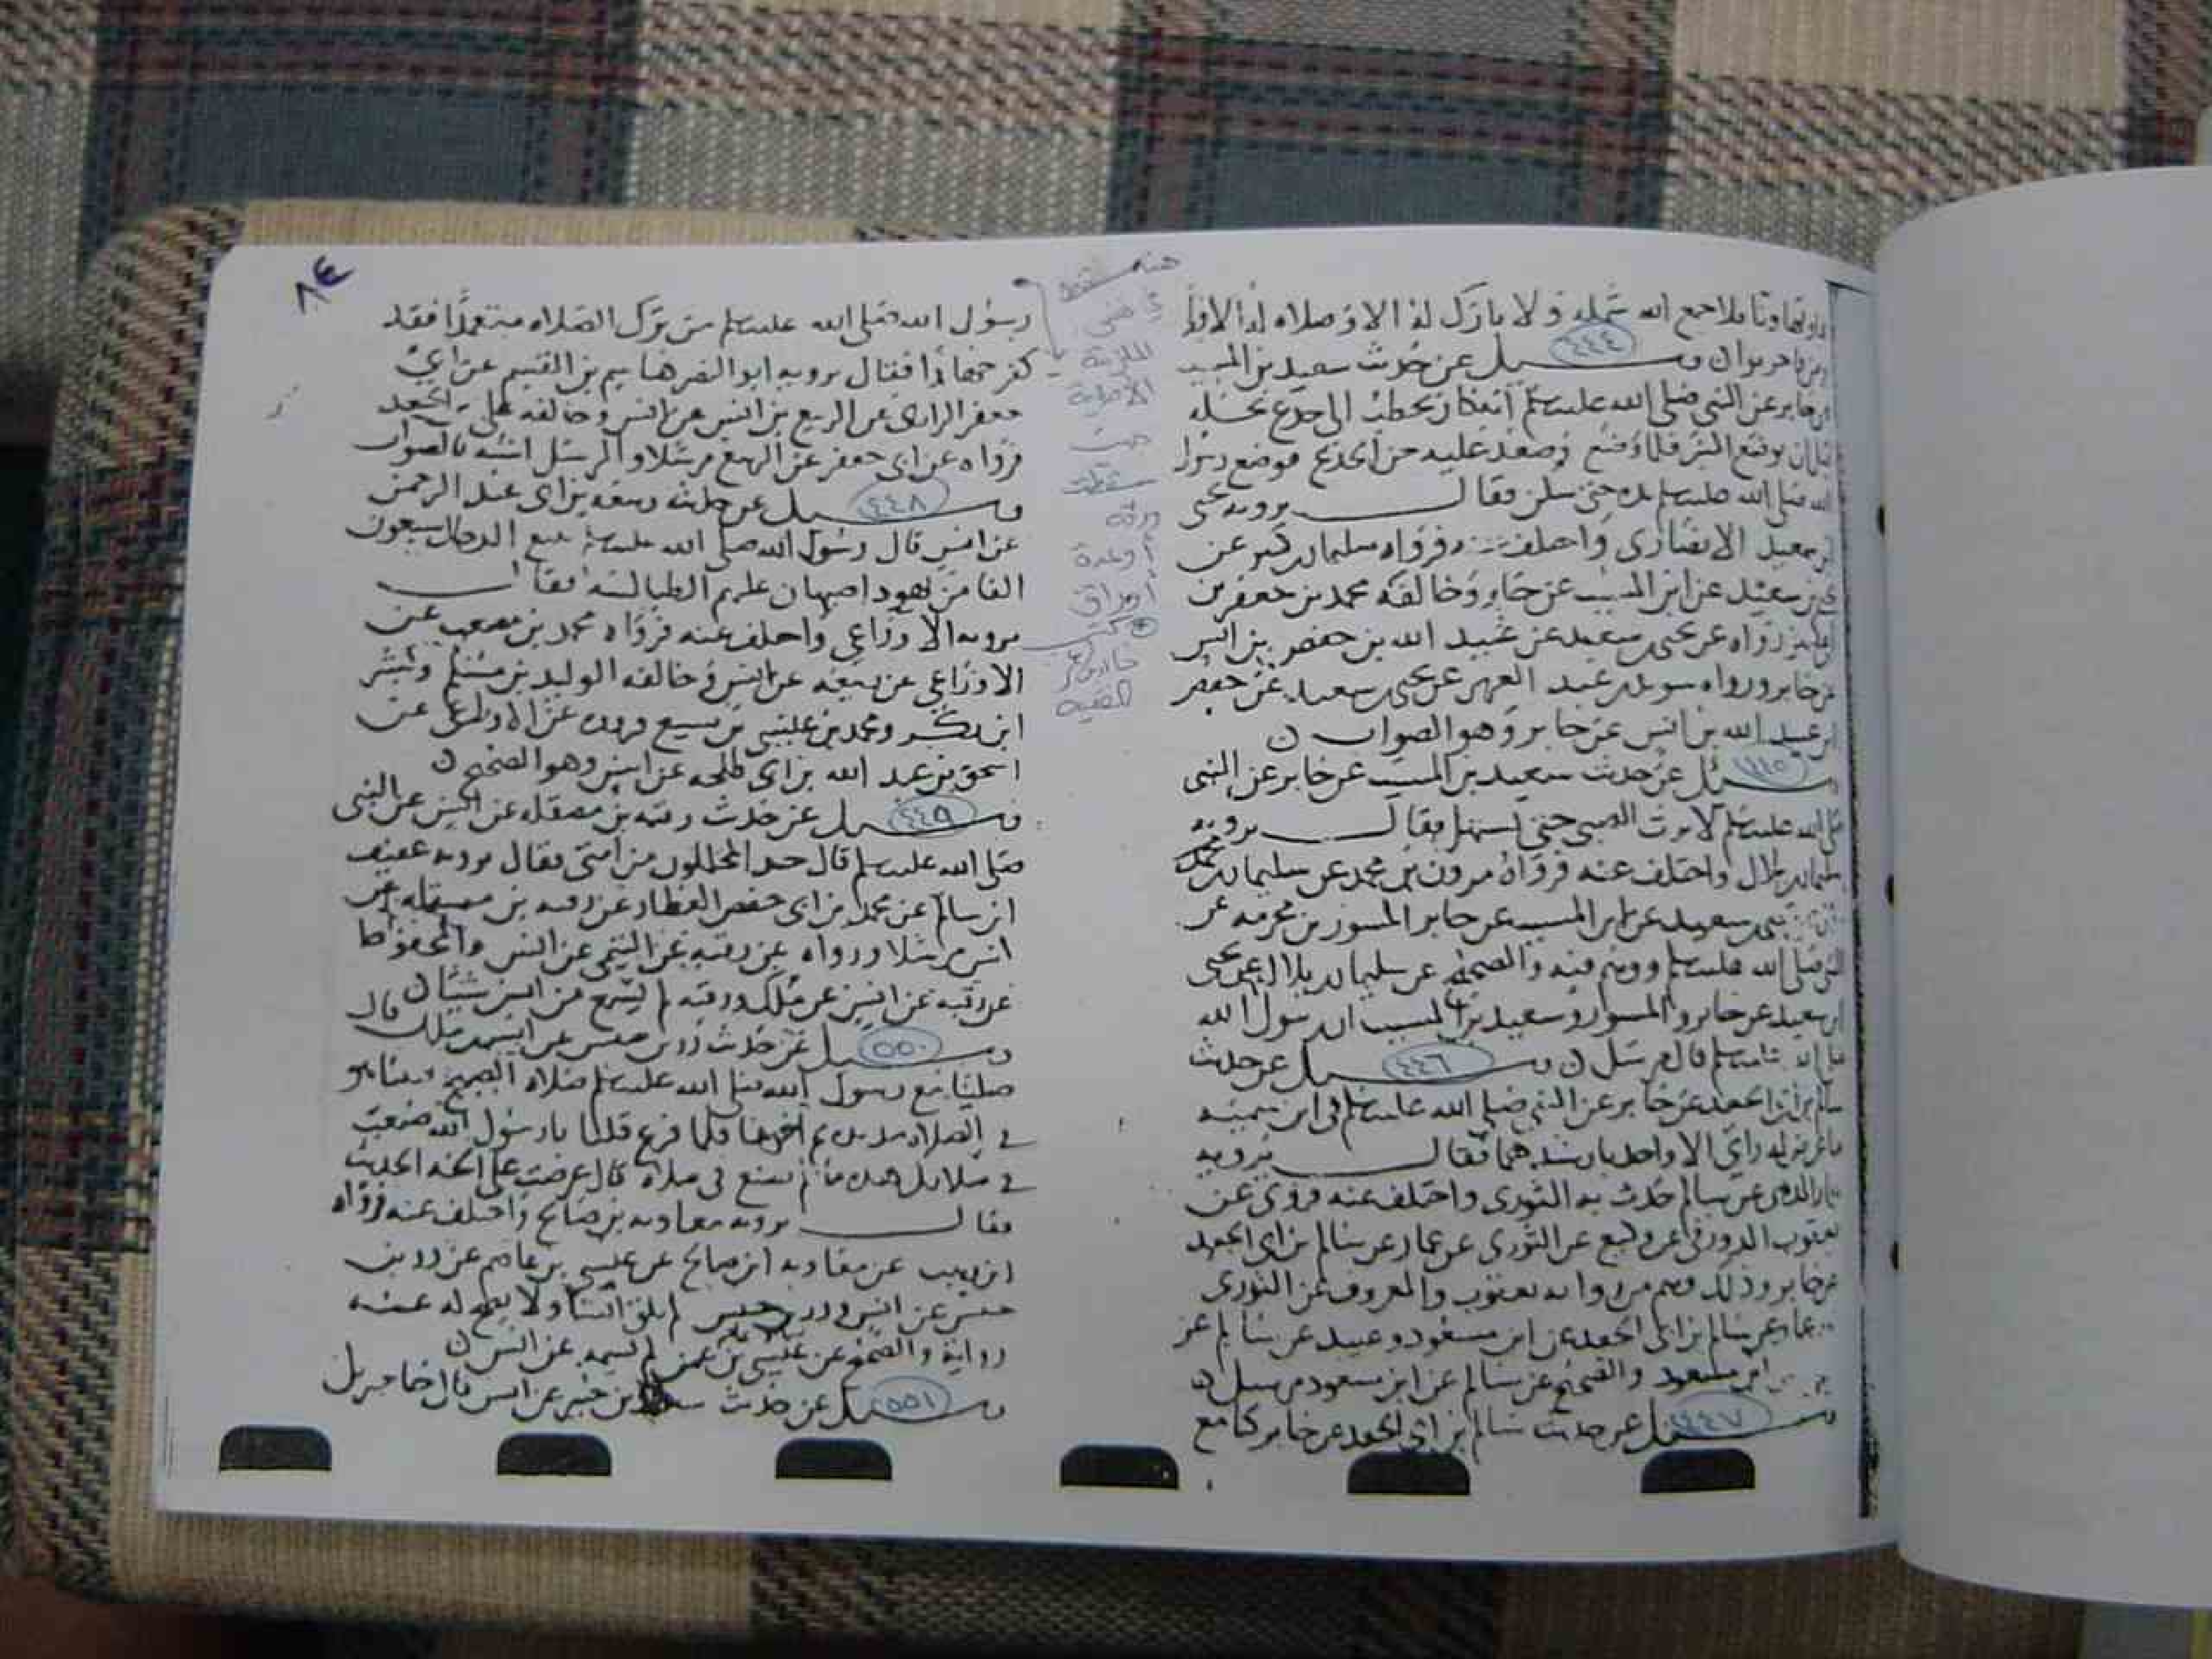 تهاونا فلا جمع الله شمله ولا بارك له الا ولا صلاه له الا ولا
٤٤٤ وسئل عن حديث سعيد بن المسيب
عن جابر عن النبي صلى الله عليه وسلم انه كان يخطب الى جذع نخله
قبل ان يوضع المنبر فلما وضع وصعد عليه حن الجذع فوضع رسول
الله صلى الله عليه وسلم يده حتى سكن فقال يرويه يحيى
بن سعيد الانصاري واختلف عنه فرواه سليمان بن كثير عن
يحيى بن سعيد عن ابن المسيب عن جابر وخالفه محمد بن جعفر بن
ابي كثير رواه عن يحيى بن سعيد عن عبيد الله بن حفص بن انس
عن جابر ورواه سويد بن عبد العزيز عن يحيى بن سعيد عن حفص
بن عبيد الله بن انس عن جابر وهو الصواب ن
٤٤٥ وسئل عن حديث سعيد بن المسيب عن جابر عن النبي
صلى الله عليه وسلم لا يرث الصبي حتى يستهل فقال يرويه
سليمان بن بلال واختلف عنه فرواه مرون بن محمد عن سليمان بن
يحيى بن سعيد عن ابن المسيب عن جابر المسور بن مخرمه عن
النبي صلى الله عليه وسلم ووهم فيه والصحيح عن سليمان بن بلال عن يحيى
بن سعيد عن جابر والمسور وسعيد بن المسيب ان رسول الله
صلى الله عليه وسلم قال مرسل ن ٤٤٦ وسئل عن حديث
سالم بن ابي الجعد عن جابر عن النبي صلى الله عليه وسلم في ابن سميه
ما عرض له راي الا واخذ بارشدهما فقال يرويه
عمار الدهني عن سالم حدث به الثوري واختلف عنه فروي عن
يعقوب الدورقي عن وكيع عن الثوري عن عمار عن سالم بن ابي الجعد
عن جابر وذلك وهم من رواية يعقوب والمعروف عن الثوري
عن عمار عن سالم بن ابي الجعد عن ابن مسعود وعبيد عن سالم عن
ابن مسعود والصحيح عن سالم عن ابن مسعود مرسل ن
٤٤٧ وسئل عن حديث سالم بن ابي الجعد عن جابر كنا مع
هنا سقط
ورقة
أو عدة
أوراق
كتبه
الفقيه
٨٤
رسول الله صلى الله عليه وسلم من ترك الصلاه متعمدا فقد
كفر جهارا فقال يرويه ابو النضر هاشم بن القسم عن ابي
جعفر الرازي عن الربيع بن انس عن انس وخالفه علي بن الجعد
فرواه عن ابي جعفر عن الربيع مرسلا والمرسل اشبه بالصواب
٤٤٨ وسئل عن حديث ربيعه بن ابي عبد الرحمن
عن انس قال رسول الله صلى الله عليه وسلم يتبع الدجال سبعون
الفا من يهود اصبهان عليهم الطيالسة فقال
يرويه الاوزاعي واختلف عنه فرواه محمد بن مصعب عن
الاوزاعي عن ربيعه عن انس وخالفه الوليد بن مسلم وبشر
ابن بكر ومحمد بن عيسى بن سميع فرووه عن الاوزاعي عن
اسحق بن عبد الله بن ابي طلحه عن انس وهو الصحيح ن
٤٤٩ وسئل عن حديث رقبه بن مصقله عن انس عن النبي
صلى الله عليه وسلم قال حبذا المتخللون من امتي فقال يرويه عفيف
ابن سالم عن محمد بن ابي حفص العطار عن رقبه بن مصقله عن
انس مرسلا ورواه عن رقبه عن التيمي عن انس والمحفوظ
عن رقبه عن انس بن ملك ورقبه لم يسمع من انس شيئا ن
٥٥٠ وسئل عن حديث زر بن حبيش عن انس بن ملك قال
صلينا مع رسول الله صلى الله عليه وسلم صلاه الصبح فبينا هو
في الصلاه مد يده ثم اخرها فلما فرغ قلنا يا رسول الله صنعت
في صلاتك هذه ما لم تصنع في صلاه قال عرضت علي الجنه الحديث
فقال يرويه معاويه بن صالح واختلف عنه فرواه
ابن وهب عن معاويه ابن صالح عن عيسى بن عاصم عن زر بن
حبيش عن انس وزر بن حبيش لم يلق انسا ولا يصح له عنه
رواية والصحيح عن عيسى بن عاصم لم يسمه عن انس ن
٥٥١ وسئل عن حديث سعيد بن جبير عن انس قال جا جبريل